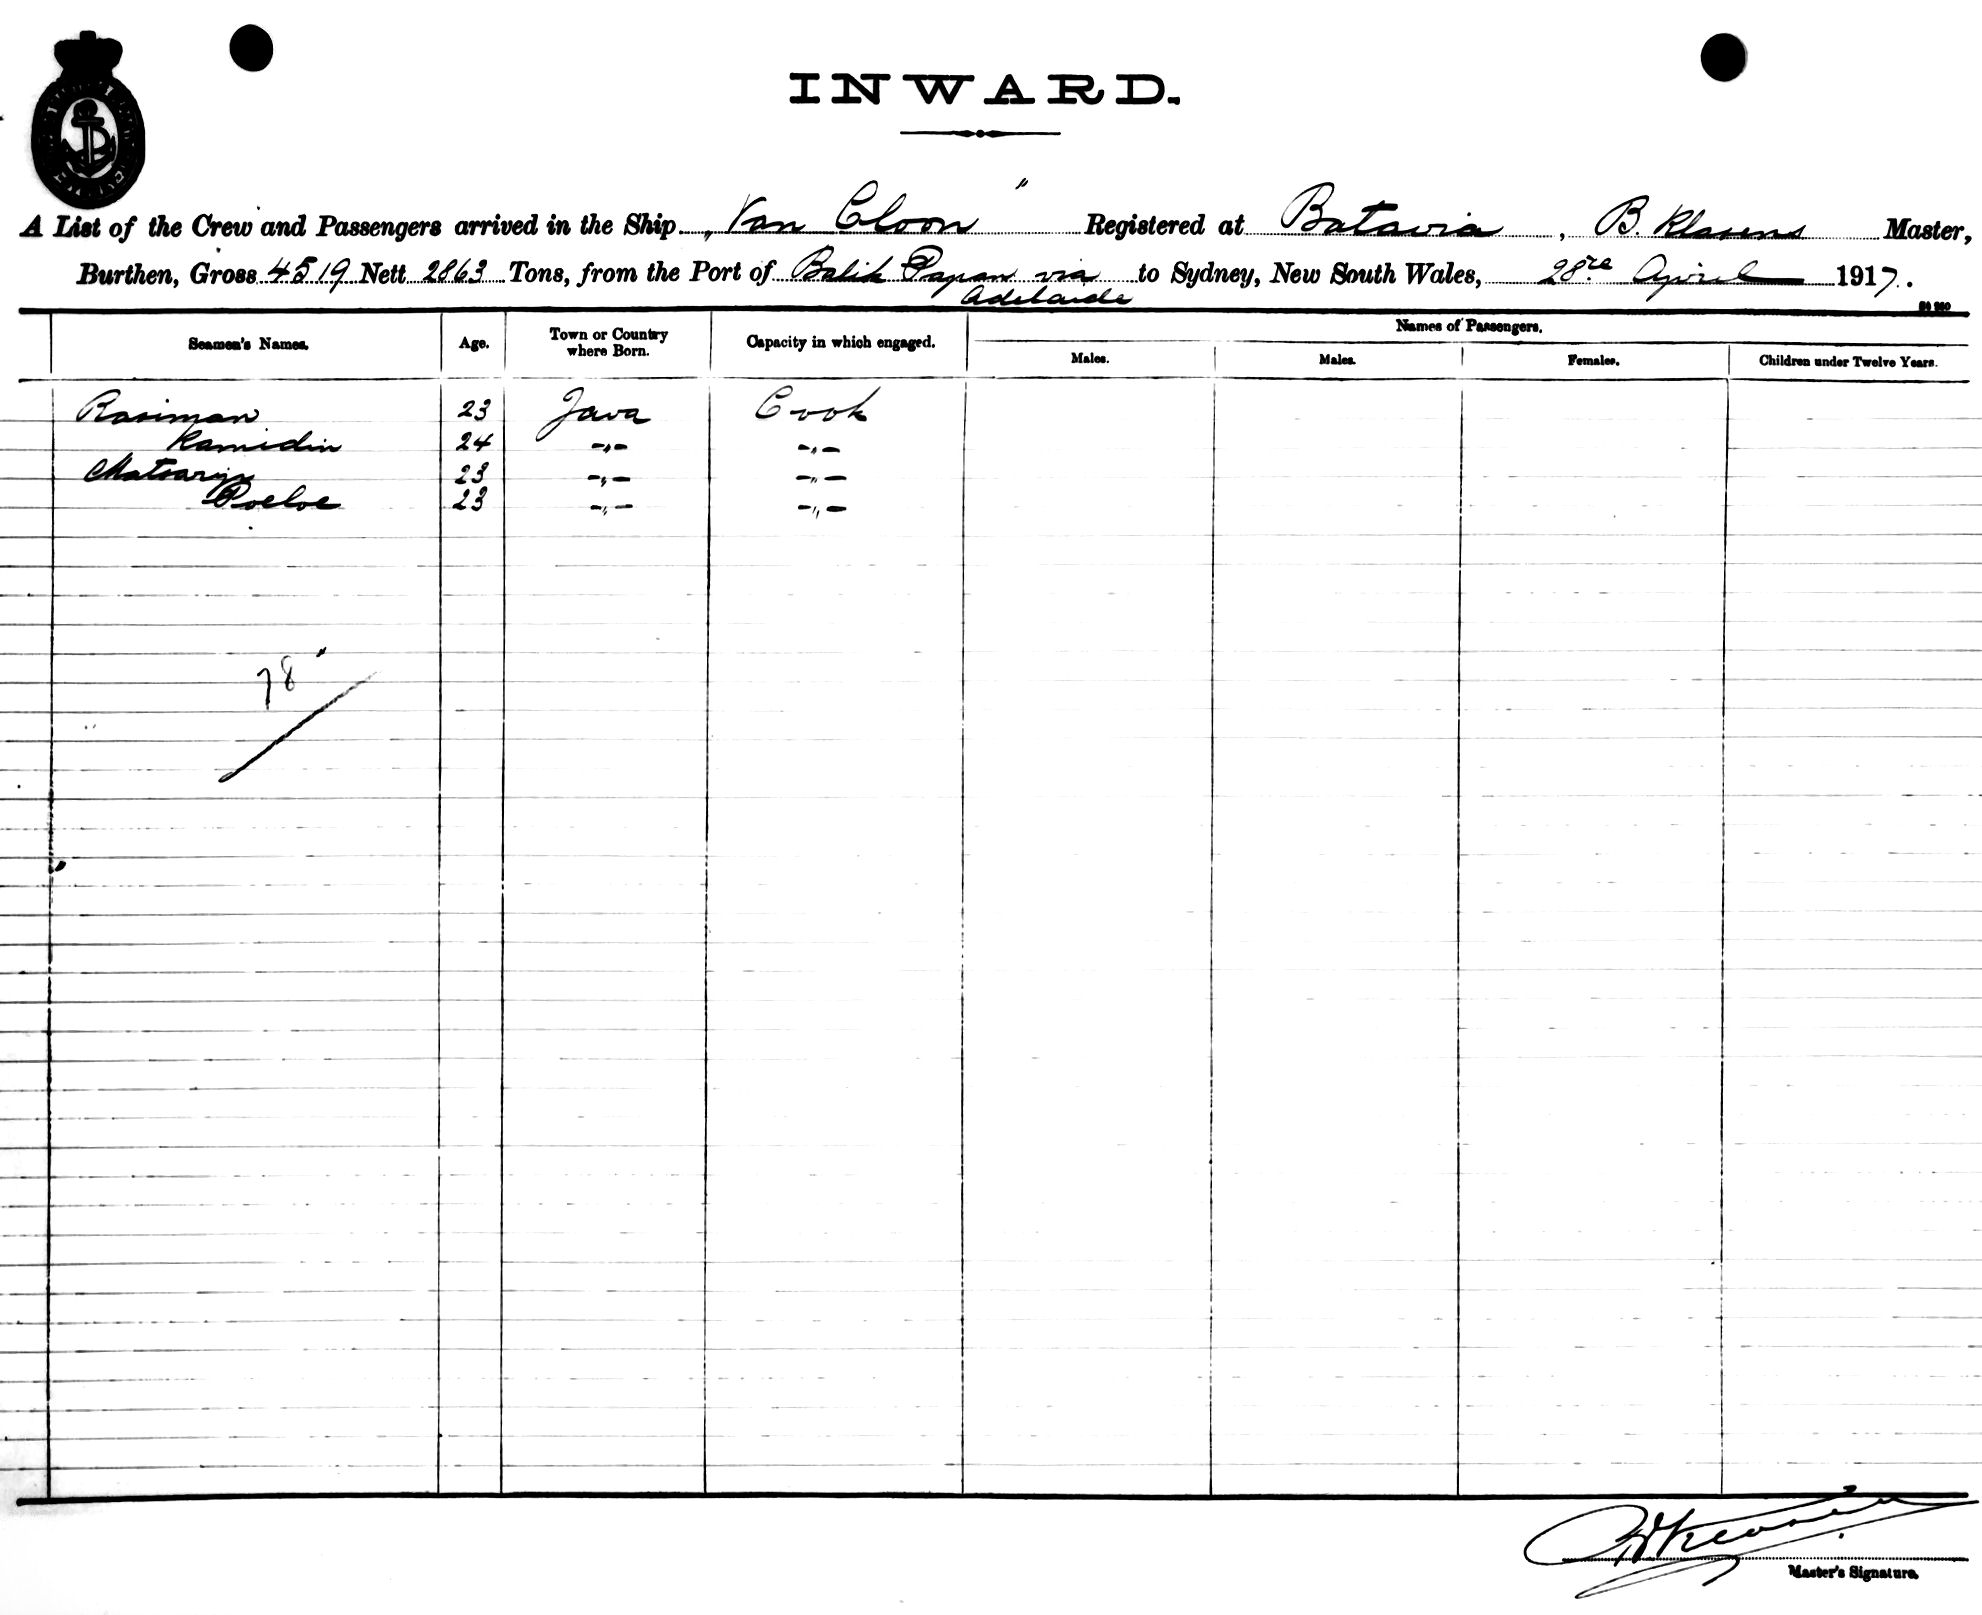 INWARD.
A List of the Crew and Passengers arrived in the Ship „Van Cloon" Registered at Batavia, B. Klasens Master,
Burthen, Gross 4519 Nett 2863 Tons, from the Port of Balik Papan via to Sydney, New South Wales, 28re April 1917.
Adelaide
Seamen's Names. Age. Town or Country where Born. Capacity in which engaged. Names of Passengers.
Males. Males. Females. Children under Twelve Years.
Rasiman 23 Java Cook
Kamidin 24 -„- -„-
Matsarijn 23 -„- -„-
Poeloe 23 -„- -„-
78
Master's Signature.